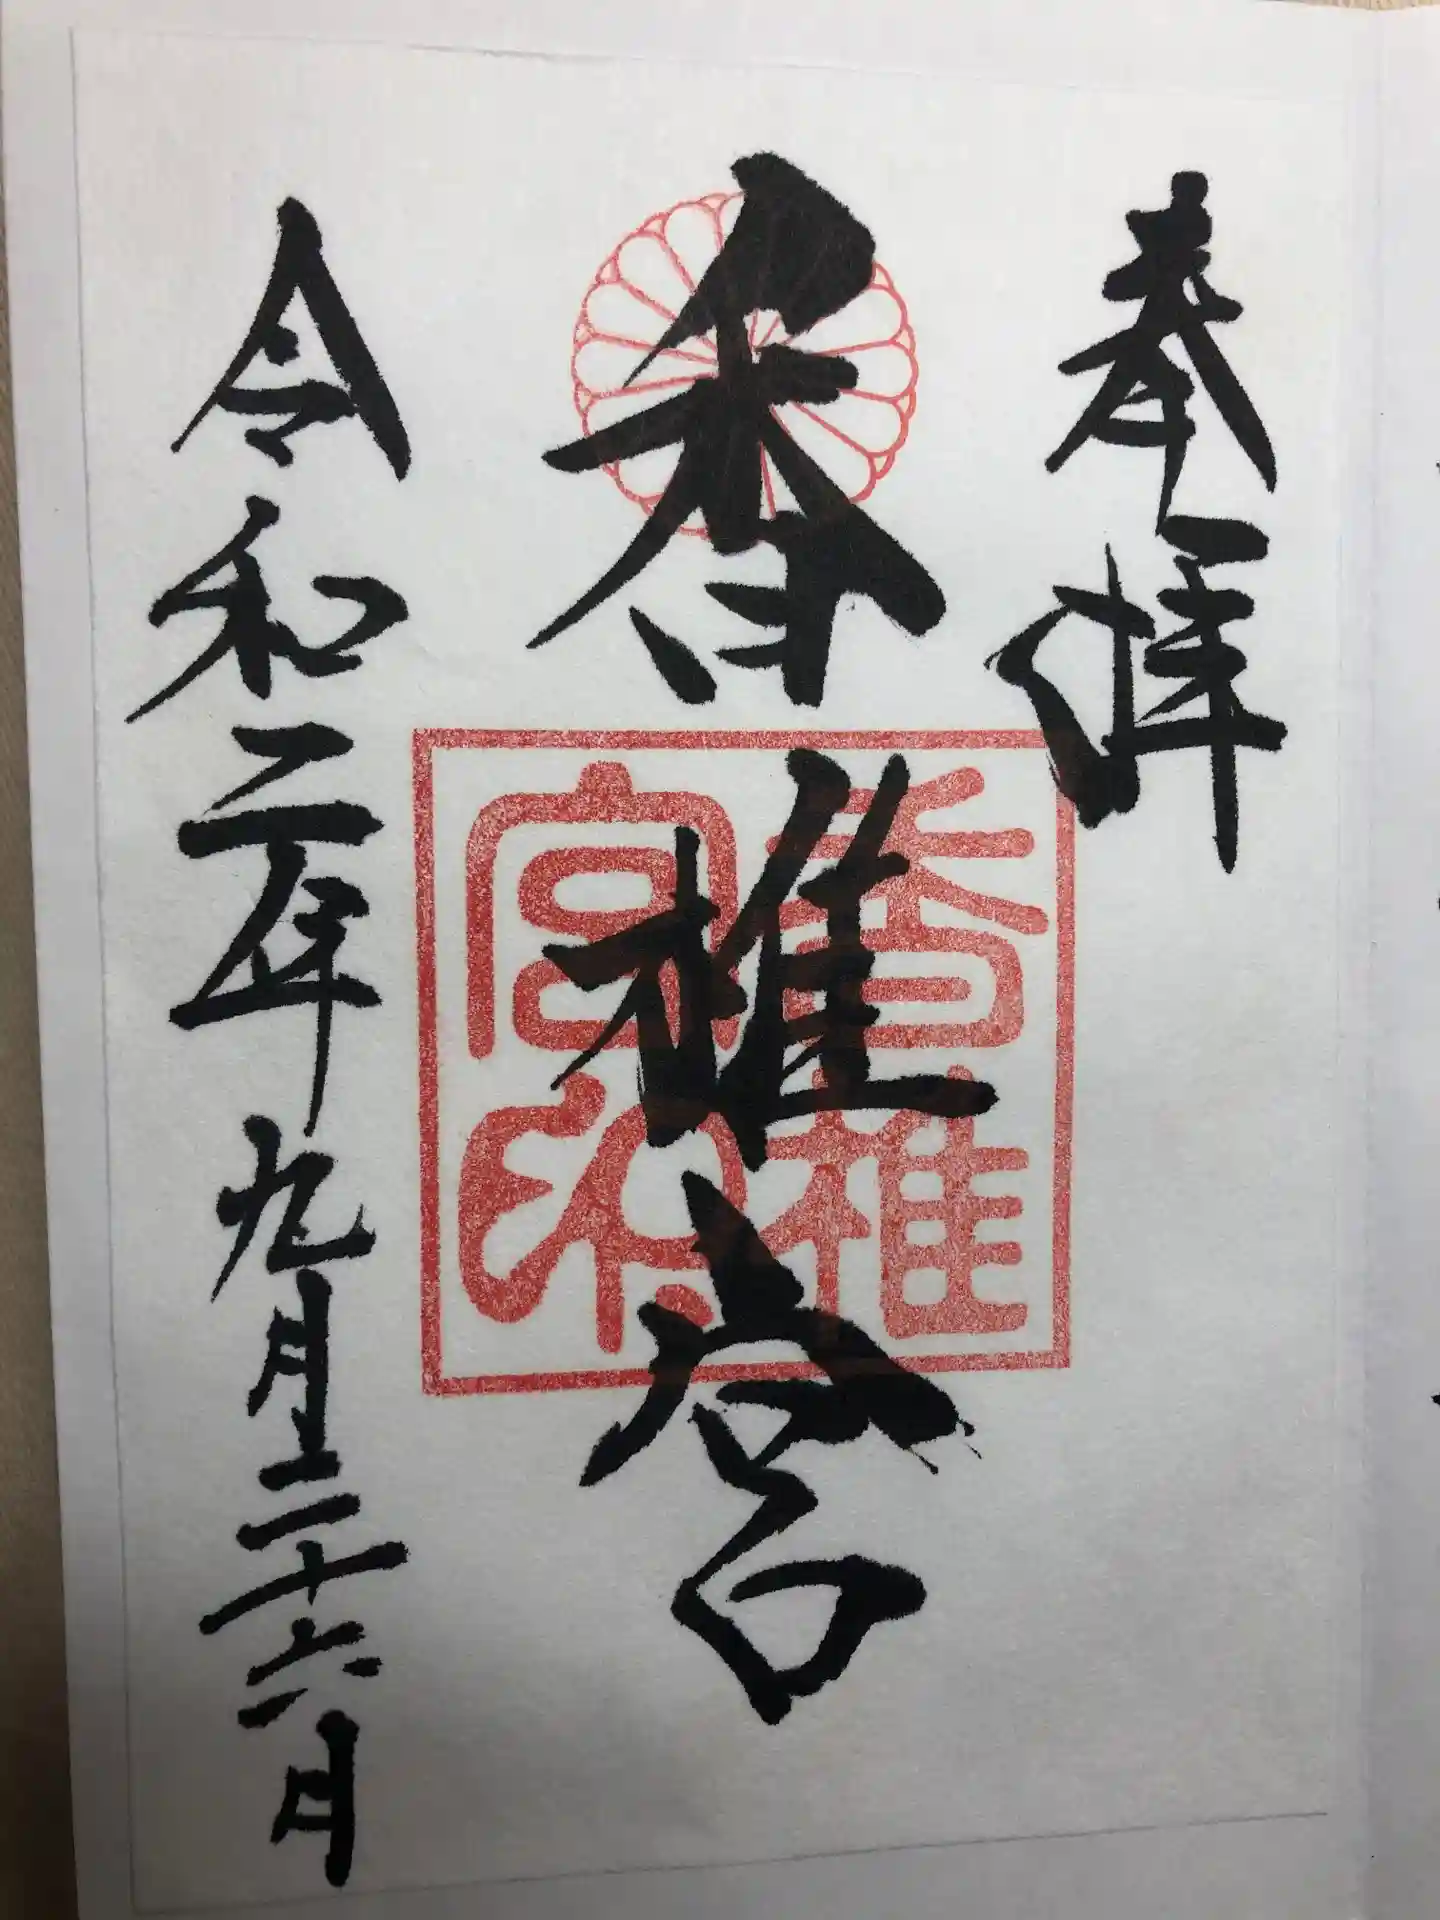 奉拝
香椎宮
香椎宮印
令和二年九月二十六日